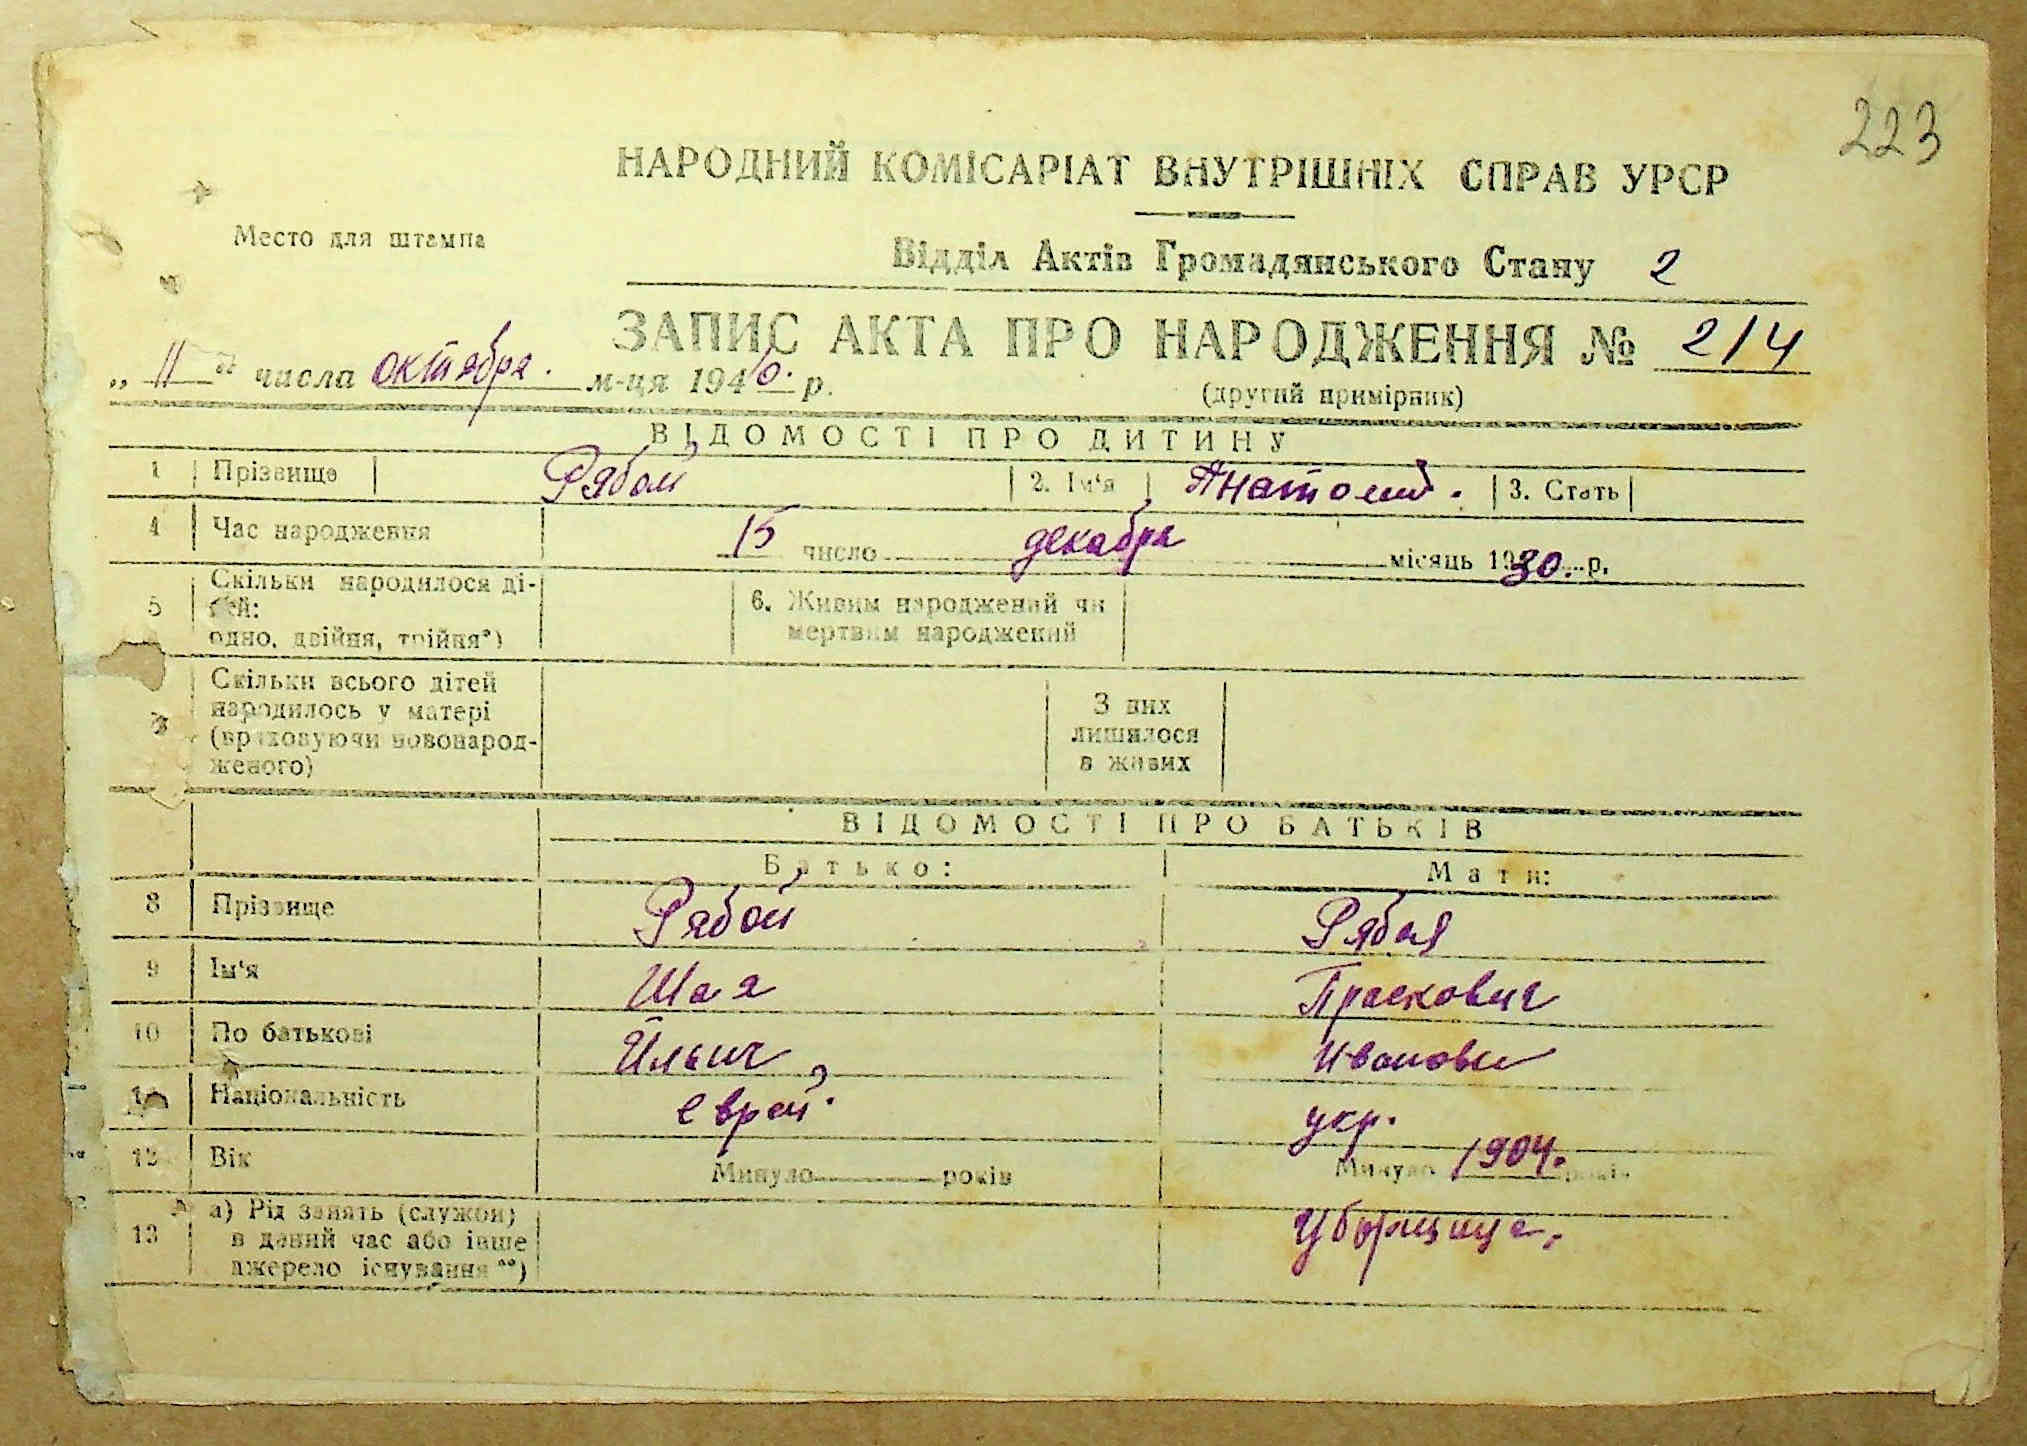 223
НАРОДНИЙ КОМІСАРІАТ ВНУТРІШНІХ СПРАВ УРСР
Место для штампа
Відділ Актів Громадянського Стану 2
ЗАПИС АКТА ПРО НАРОДЖЕННЯ № 214
„ 11 “ числа октября. м-ця 1940. р.
(другий примірник)
ВІДОМОСТІ ПРО ДИТИНУ
1 Прізвище Рябой 2. Ім‘я Анатолий. 3. Стать
4 Час народження 15 число декабря місяць 1930. р.
5 Скільки народилося дітей: одно, двійня, трійня*) 6. Живим народжений чи мертвим народжений
Скільки всього дітей народилось у матері (враховуючи новонародженого) З них лишилося в живих
ВІДОМОСТІ ПРО БАТЬКІВ
Батько: Мати:
8 Прізвище Рябой Рябая
9 Ім‘я Шая Прасковия
10 По батькові Ильич Ивановн
11 Національність еврей. укр.
12 Вік Минуло років Минуло 1904. років
13 а) Рід занять (служби) в даний час або інше джерело існування**) Уборщица.